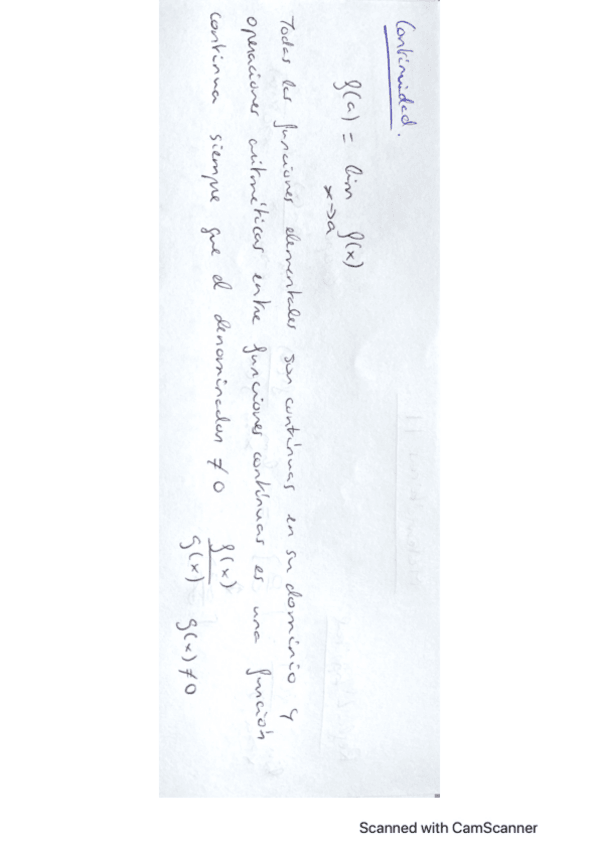 Continuidad.
f(a) = lim f(x)
x→a
Todas las funciones elementales son continuas en su dominio y
operaciones aritméticas entre funciones continuas es una función
continua siempre que el denominador ≠ 0 f(x)/g(x) g(x) ≠ 0
Scanned with CamScanner